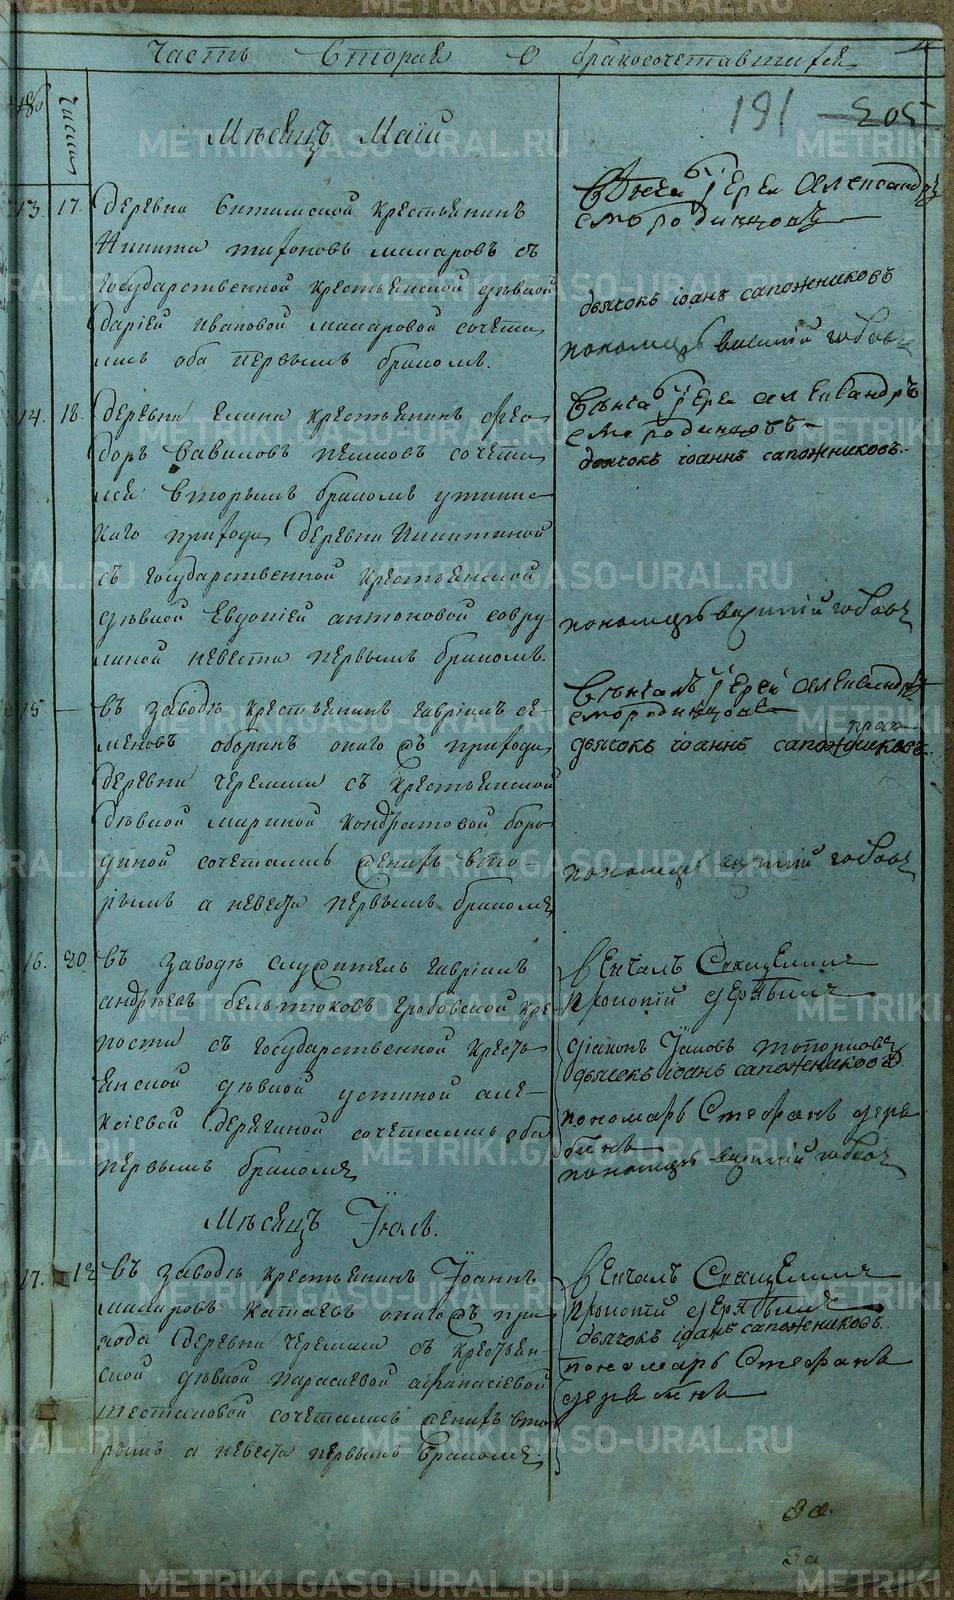 Часть Вторая О бракосочетавшихся
Число
191 205
Месяцъ Маій
13. 17. деревни крестьянинъ
Никита макаровъ съ
государственной крестьянской девкой
дарией Ивановой макаровой сочета
лись оба первымъ бракомъ.
Венчалъ Іерей Александръ
смородинцовъ
дьячокъ іоанъ сапожниковъ
пономарь василій
14. 18. деревни крестьянинъ Фео
доръ Вавиловъ сочета
лся вторымъ бракомъ
каго прихода деревни Никитиной
съ государственной крестьянской
девкой Евдокіей антоновой
невеста первымъ бракомъ.
Іерей александръ
смородинцовъ
дьячокъ іоаннъ сапожниковъ.
пономарь василій
15 въ заводе крестьянинъ гавріилъ се
меновъ онаго жъ прихода
деревни черемши съ крестьянской
девкой мариной кондратовой боро
диной сочетались женихъ вто
рымъ а невеста первымъ бракомъ
Венчалъ Іерей Александръ
смородинцовъ
дьячокъ іоаннъ сапожниковъ
пономарь василій
16. 20 въ заводе служитель гавріилъ
андреевъ бельтюковъ Гробовской кре
пости съ государственной кресть
янской девкой устиной але
ксіевой сочетались оба
первымъ бракомъ
венчалъ Священникъ
Прокопій дерябинъ
діаконъ Іаковъ топорковъ
дьячокъ іоанъ сапожниковъ
пономарь Стефанъ деря
бинъ
пономарь василій
Месяцъ Іюль.
17. 12 въ заводе крестьянинъ Іоаннъ
макаровъ катаевъ онаго жъ при
хода деревни черемши съ крестьян
ской девкой параскевой афанасіевой
шестаковой сочетались женихъ вто
рымъ а невеста первымъ бракомъ
венчалъ Священникъ
прокопій дерябинъ
дьячокъ іоанъ сапожниковъ.
пономарь Стефанъ
дерябинъ
METRIKI.GASO-URAL.RU